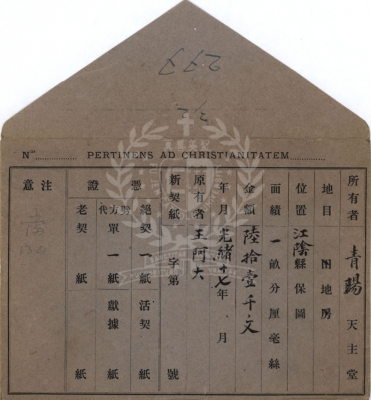 Nº PERTINENS AD CHRISTIANITATEM
所有者 青暘 天主堂
地目 田地房
位置 江陰縣 保 圖
面績 一畝 分 厘 毫 絲
金額 陸拾壹千文
年月 光緒十七年 月
原有者 王阿大
新契紙 字第 號
憑證 絕契 一紙 活契 紙
方單 一紙 獻據 紙
老契 紙
注意